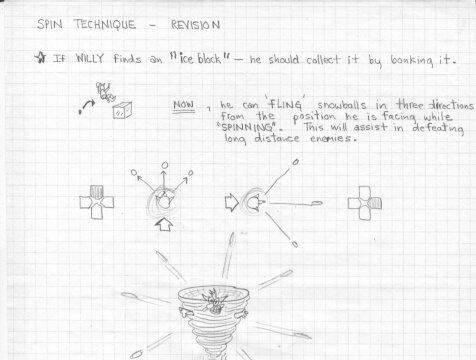 SPIN TECHNIQUE - REVISION
☆ IF WILLY finds an "ice block" — he should collect it by bonking it.
NOW, he can 'FLING' snowballs in three directions
from the position he is facing while
"SPINNING". This will assist in defeating
long distance enemies.